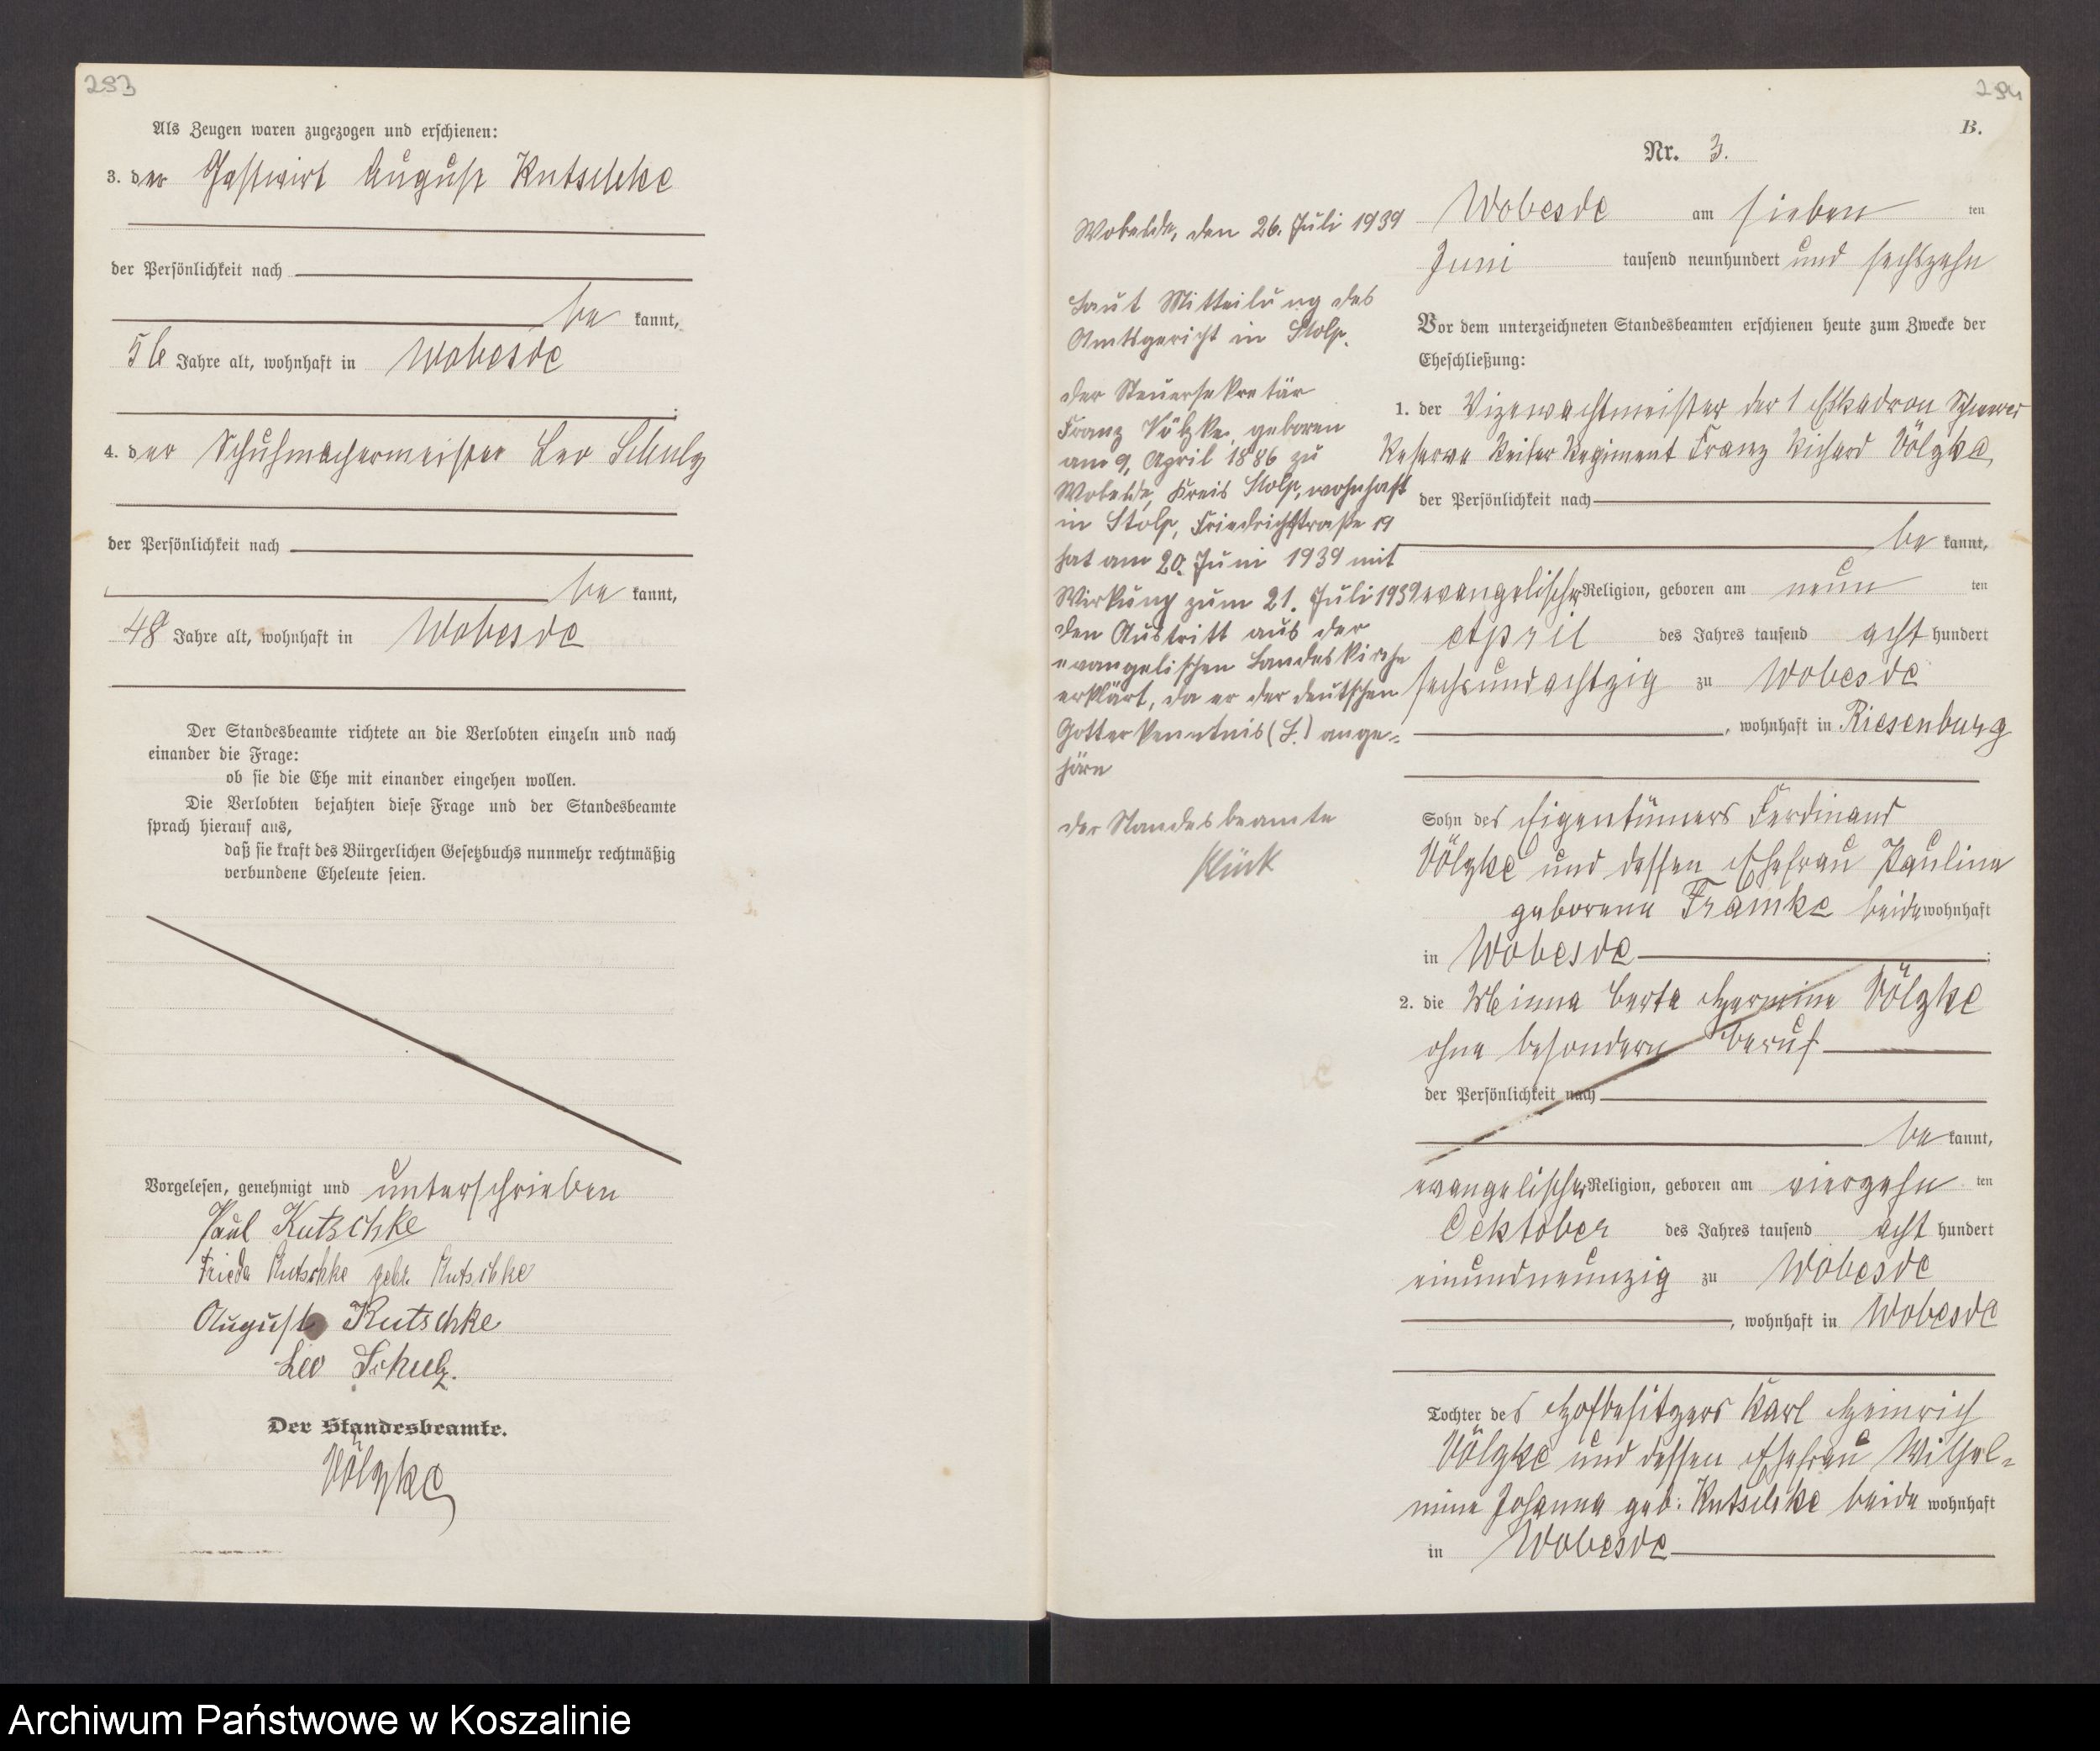 293
Als Zeugen waren zugezogen und erschienen:
3. der Gastwirt August Kutschke
der Persönlichkeit nach
be kannt,
56 Jahre alt, wohnhaft in Wobesde
4. der Schuhmachermeister Leo Schulz
der Persönlichkeit nach
be kannt,
48 Jahre alt, wohnhaft in Wobesde
Der Standesbeamte richtete an die Verlobten einzeln und nach
einander die Frage:
ob sie die Ehe mit einander eingehen wollen.
Die Verlobten bejahten diese Frage und der Standesbeamte
sprach hierauf aus,
daß sie kraft des Bürgerlichen Gesetzbuchs nunmehr rechtmäßig
verbundene Eheleute seien.
Vorgelesen, genehmigt und unterschrieben
Paul Kutschke
Frieda Kutschke gebr. Kutschke
August Kutschke
Leo Schulz.
Der Standesbeamte.
Völzke
294
B.
Nr. 3.
Wobesde am sieben ten
Juni tausend neunhundert und sechszehn
Vor dem unterzeichneten Standesbeamten erschienen heute zum Zwecke der
Eheschließung:
1. der Vizewachtmeister der 1 Eskadron Schweres
Reserve Reiter Regiment Franz Richard Völzke,
der Persönlichkeit nach
be kannt,
evangelischer Religion, geboren am neun ten
April des Jahres tausend acht hundert
sechsundachtzig zu Wobesde
, wohnhaft in Riesenburg
Sohn des Eigentümers Ferdinand
Völzke und dessen Ehefrau Pauline
geborene Framke beide wohnhaft
in Wobesde ;
2. die Minna Berta Hermine Völzke
ohne besondern Beruf
der Persönlichkeit nach
be kannt,
evangelischer Religion, geboren am vierzehn ten
Oektober des Jahres tausend acht hundert
einundneunzig zu Wobesde
, wohnhaft in Wobesde
Tochter des Hofbesitzers Karl Heinrich
Völzke und dessen Ehefrau Wilhel-
mine Johanna geb. Kutschke beide wohnhaft
in Wobesde
Wobesde, den 26. Juli 1939
Laut Mitteilung des
Amtsgericht in Stolp.
der Steuersekretär
Franz Völzke, geboren
am 9. April 1886 zu
Wobesde, Kreis Stolp, wohnhaft
in Stolp, Friedrichstraße 19
hat am 20. Juni 1939 mit
Wirkung zum 21. Juli 1939
den Austritt aus der
evangelischen Landeskirche
erklärt, da er der deutschen
Gotterkenntnis (L.) ange-
höre
der Standesbeamte
Archiwum Państwowe w Koszalinie